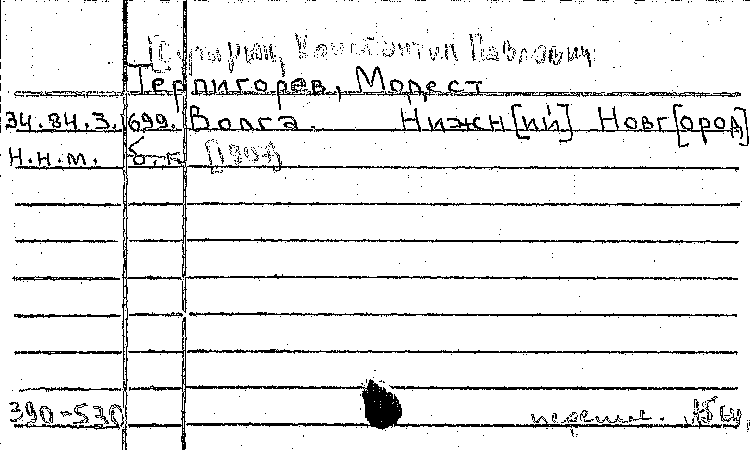 Константин Павлович
Терпигорев, Модест
34.84.3. 699. Волга. Нижн[ий] Новг[ород]
Н.н.м. б.г. [190
390-530